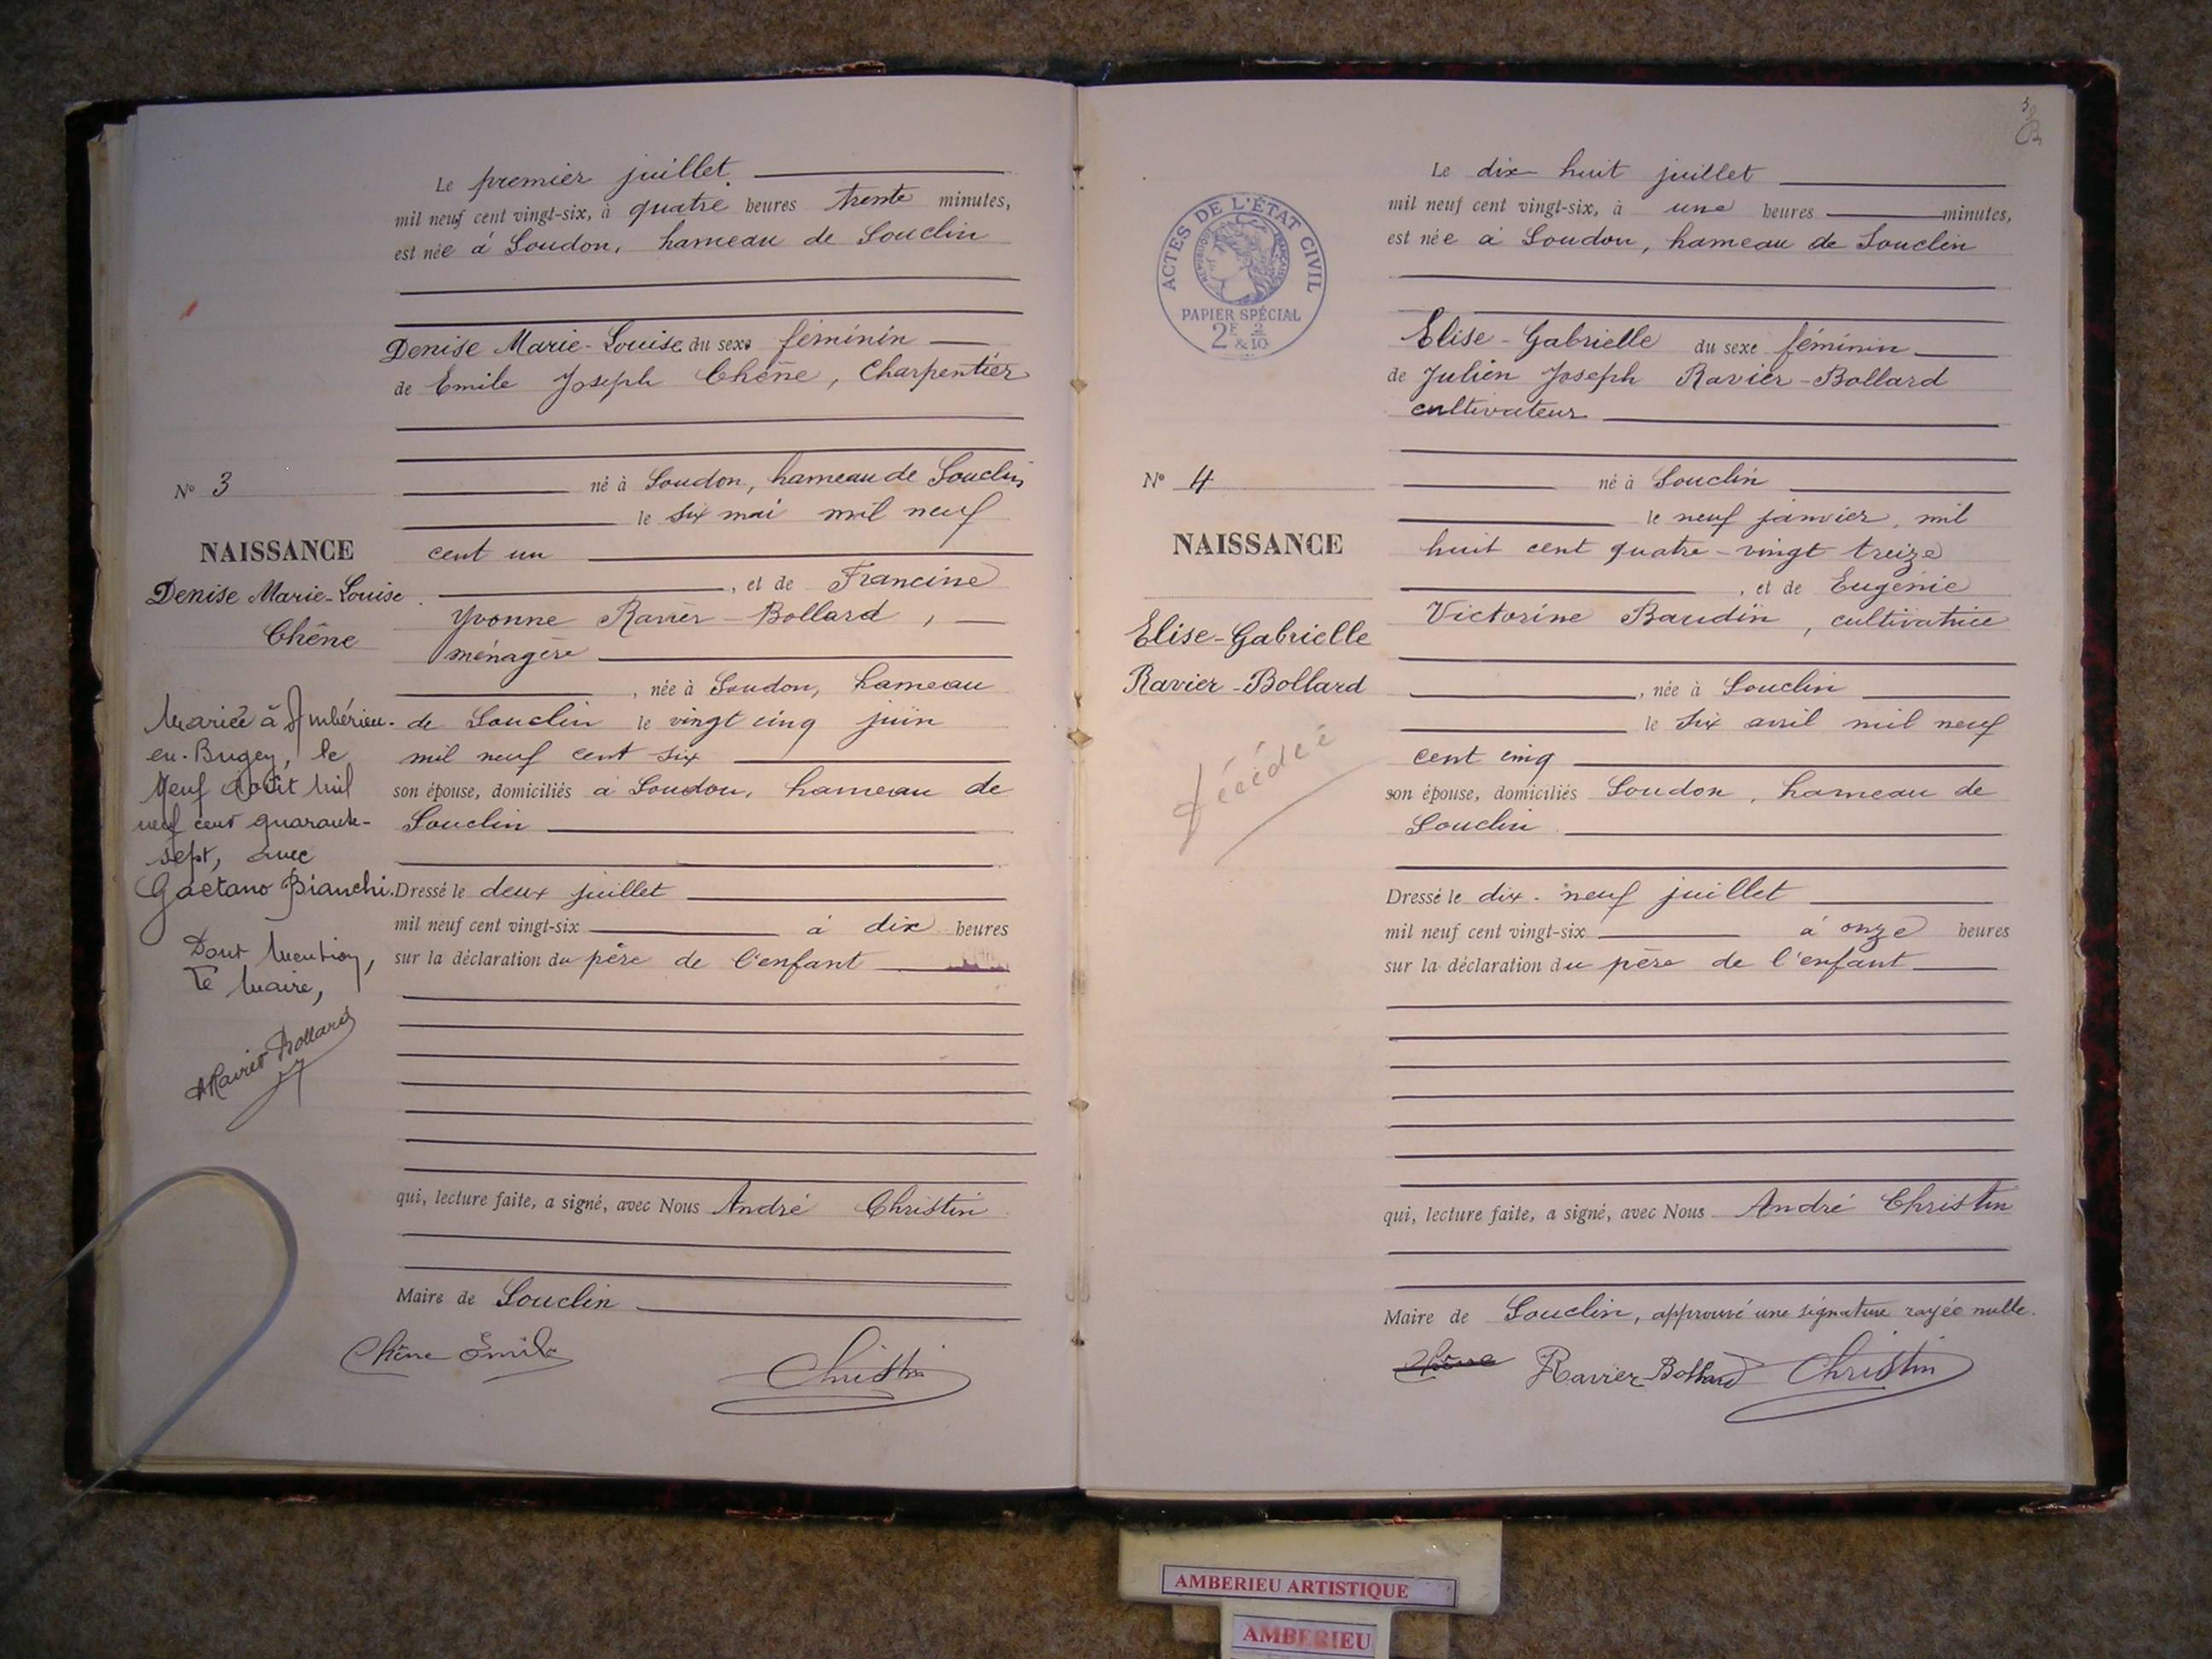 Le premier juillet
mil neuf cent vingt-six, à quatre heures trente minutes,
est née à Soudon, hameau de Souclin
Denise Marie-Louise du sexe féminin
de Emile Joseph Chêne, Charpentier
né à Soudon, hameau de Souclin
N° 3
le six mai mil neuf
NAISSANCE
cent un
Denise Marie-Louise
Chêne
, et de Francine
Yvonne Ravier-Bollard,
ménagère
, née à Soudon, hameau
de Souclin le vingt cinq juin
mil neuf cent six
son épouse, domiciliés à Soudon, hameau de
Souclin
Mariée à Ambérieu-
en-Bugey, le
Neuf Août mil
neuf cent quarante-
sept, avec
Gaétano Bianchi.
Dont Mention,
Le Maire,
Ravier Bollard
Dressé le deux juillet
mil neuf cent vingt-six à dix heures
sur la déclaration du père de l'enfant
qui, lecture faite, a signé, avec Nous André Christin
Maire de Souclin
Chêne Emile
Christin
3
Le dix-huit juillet
mil neuf cent vingt-six, à une heures minutes,
est née à Soudon, hameau de Souclin
ACTES DE L'ÉTAT CIVIL
PAPIER SPÉCIAL
2F & 2/10
Elise-Gabrielle du sexe féminin
de Julien Joseph Ravier-Bollard
cultivateur
né à Souclin
N° 4
le neuf janvier, mil
NAISSANCE
huit cent quatre-vingt treize
, et de Eugénie
Elise-Gabrielle
Ravier-Bollard
Victorine Baudin, cultivatrice
, née à Souclin
le six avril mil neuf
cent cinq
décédée
son épouse, domiciliés Soudon, hameau de
Souclin
Dressé le dix-neuf juillet
mil neuf cent vingt-six à onze heures
sur la déclaration du père de l'enfant
qui, lecture faite, a signé, avec Nous André Christin
Maire de Souclin, approuvé une signature rayée nulle.
Chêne Ravier-Bollard Christin
AMBERIEU ARTISTIQUE
AMBERIEU